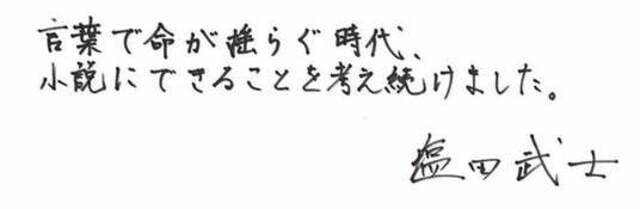 言葉で命が揺らぐ時代、
小説にできることを考え続けました。
塩田武士